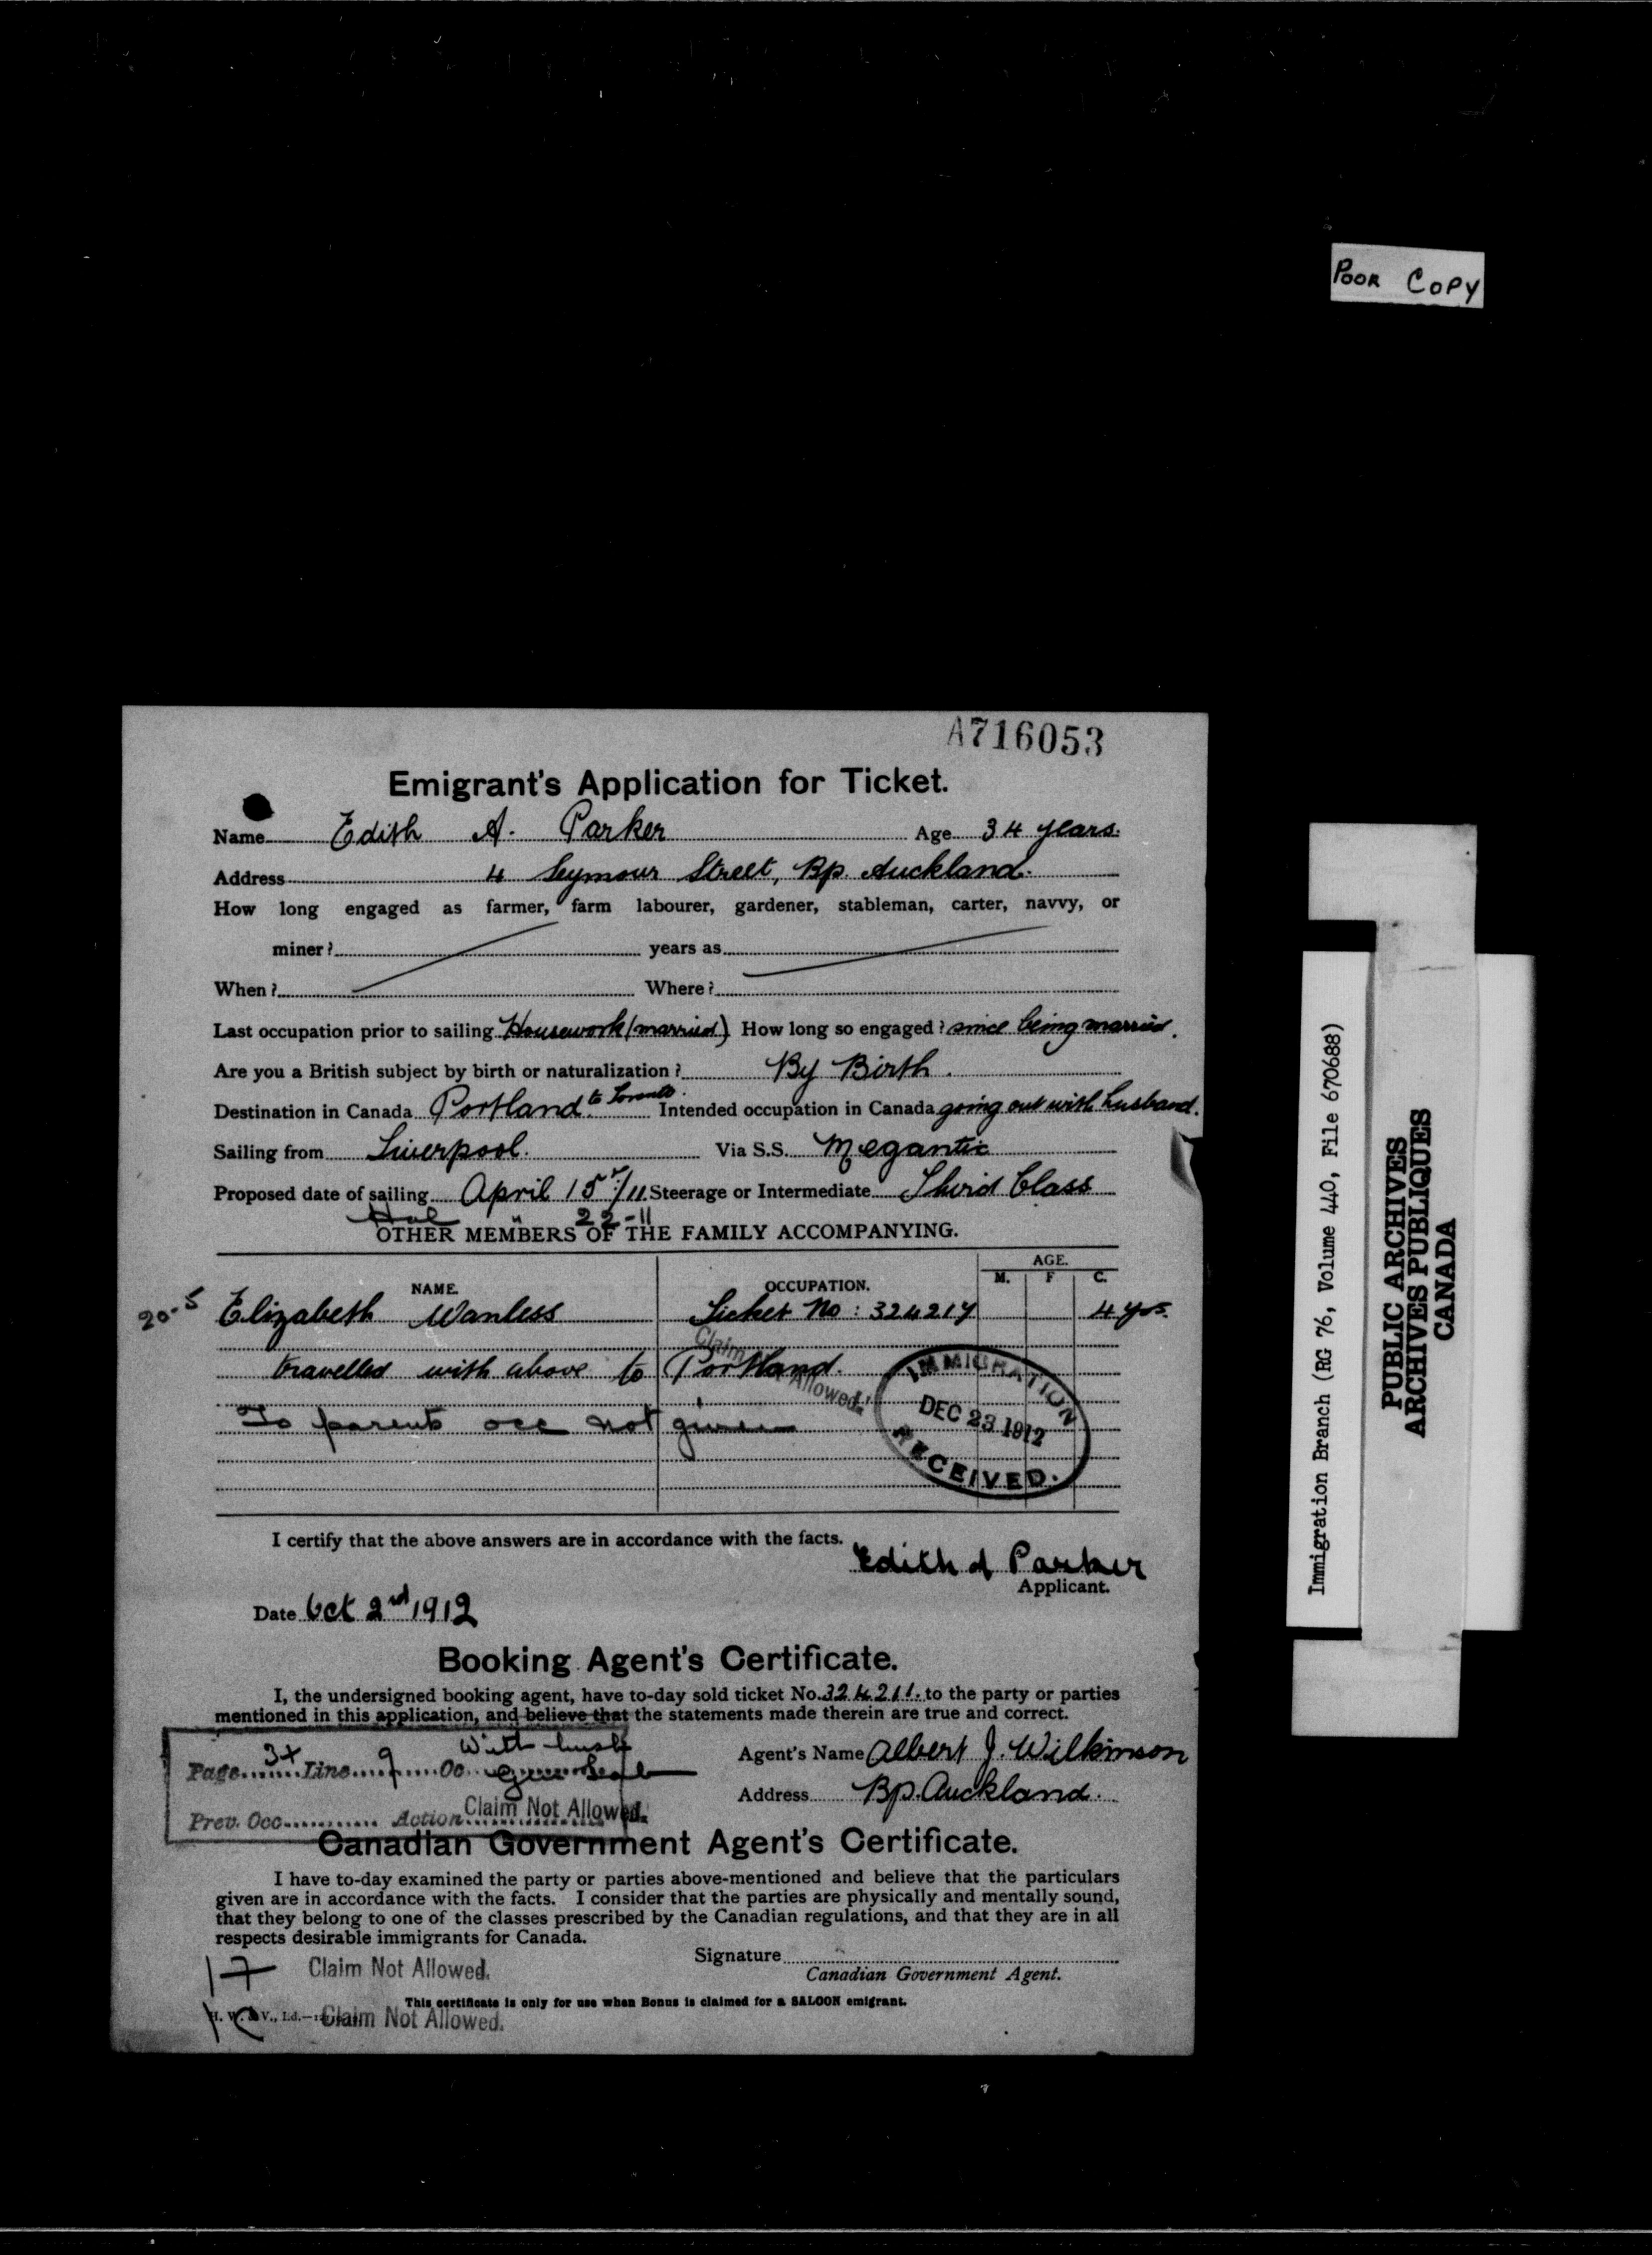 POOR COPY
A716053
Emigrant's Application for Ticket.
Name Edith A. Parker Age 34 years.
Address 4 Seymour Street, Bp. Auckland.
How long engaged as farmer, farm labourer, gardener, stableman, carter, navvy, or
miner? years as
When? Where?
Last occupation prior to sailing Housework (married) How long so engaged? since being married.
Are you a British subject by birth or naturalization? By Birth.
Destination in Canada Portland to Toronto. Intended occupation in Canada going out with husband.
Sailing from Liverpool. Via S.S. Megantic
Proposed date of sailing April 15th/11. Steerage or Intermediate Third Class
Hal " 22-11
OTHER MEMBERS OF THE FAMILY ACCOMPANYING.
AGE.
NAME. OCCUPATION. M. F C.
20-5 Elizabeth Wanless Ticket No: 324217 4 yrs.
Claim Not Allowed.
travelled with above to Portland.
To parents occ not given
IMMIGRATION
DEC 23 1912
RECEIVED.
I certify that the above answers are in accordance with the facts.
Edith A Parker
Applicant.
Date Oct 2nd 1912
Booking Agent's Certificate.
I, the undersigned booking agent, have to-day sold ticket No. 324211. to the party or parties
mentioned in this application, and believe that the statements made therein are true and correct.
With husb
Page 34 Line 9 Oc.
Agent's Name Albert J. Wilkinson
Address Bp. Auckland.
Prev. Occ. Action Claim Not Allowed.
Canadian Government Agent's Certificate.
I have to-day examined the party or parties above-mentioned and believe that the particulars
given are in accordance with the facts. I consider that the parties are physically and mentally sound,
that they belong to one of the classes prescribed by the Canadian regulations, and that they are in all
respects desirable immigrants for Canada.
Signature
Canadian Government Agent.
17 Claim Not Allowed.
This certificate is only for use when Bonus is claimed for a SALOON emigrant.
H. W. & V., Ld.
Claim Not Allowed.
Immigration Branch (RG 76, Volume 440, File 670688)
PUBLIC ARCHIVES
ARCHIVES PUBLIQUES
CANADA